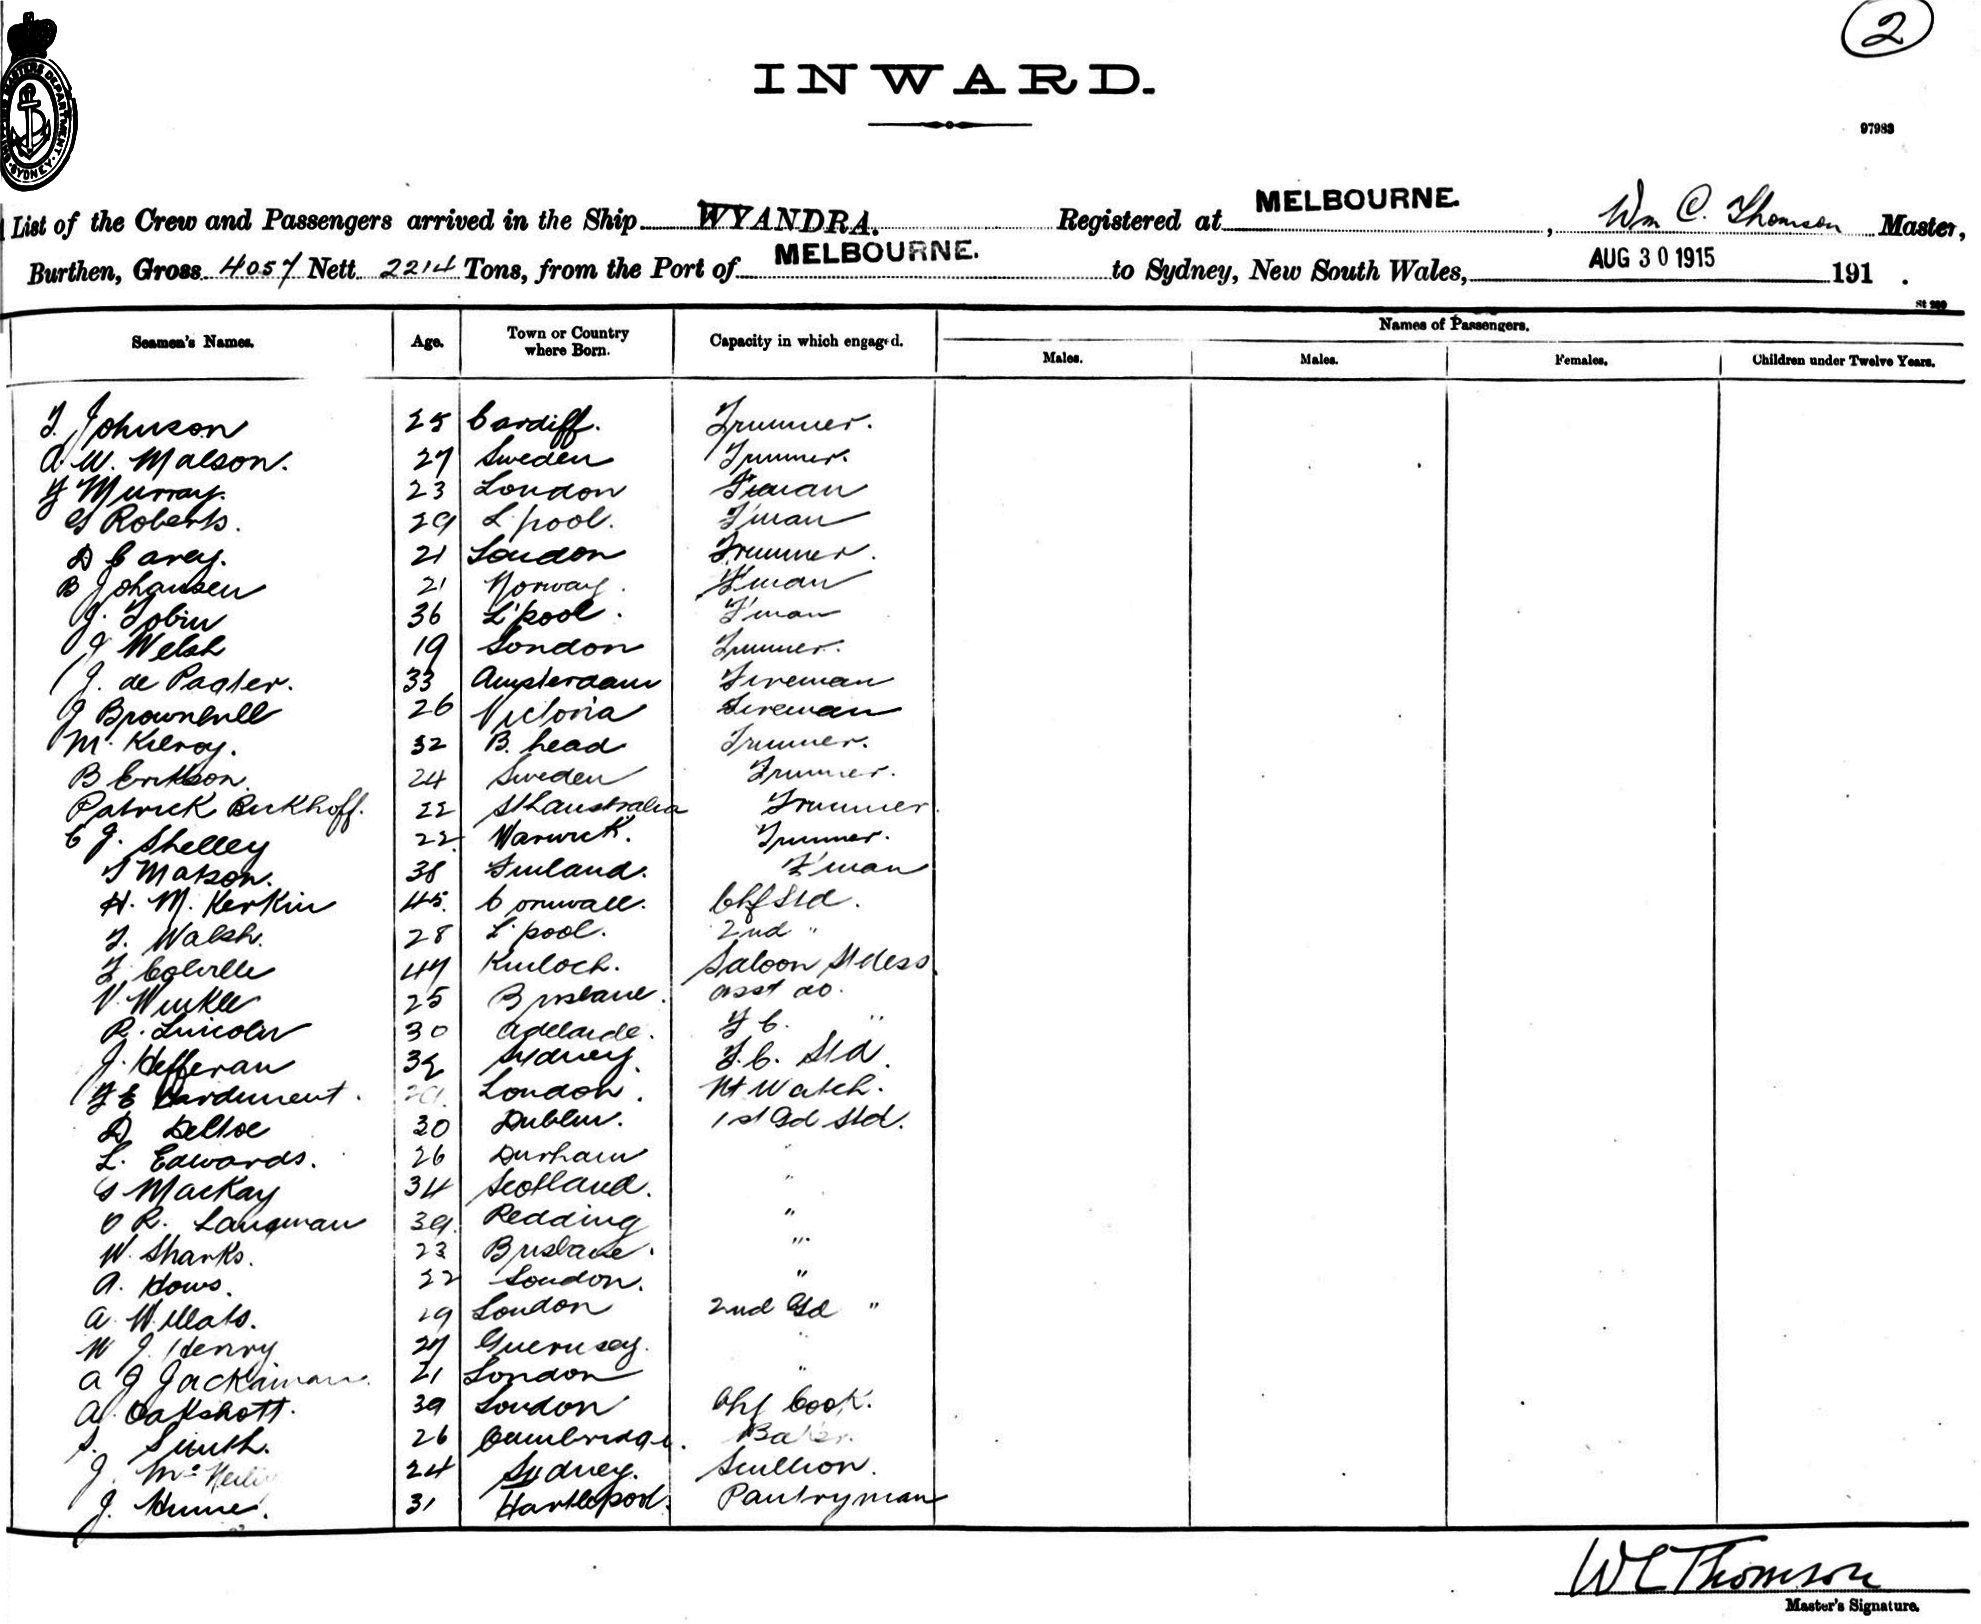 2
INWARD.
97983
List of the Crew and Passengers arrived in the Ship WYANDRA. Registered at MELBOURNE. , Wm C. Thomson Master,
Burthen, Gross 4057 Nett 2214 Tons, from the Port of MELBOURNE. to Sydney, New South Wales, AUG 30 1915 191 .
St 299
Seamen's Names. Age. Town or Country where Born. Capacity in which engaged. Names of Passengers.
Males. Males. Females. Children under Twelve Years.
T. Johnson 25 Cardiff. Trimmer.
A. W. Malson. 27 Sweden Trimmer.
Murray. 23 London Fireman
G Roberts. 29 L'pool. F'man
D Carey. 21 London Trimmer.
B Johansen 21 Norway. F'man
J. Tobin 36 L'pool. F'man
J Welsh 19 London Trimmer.
J. de Pagter. 33 Amsterdam Fireman
J Brownbill 26 Victoria Fireman
M. Kilroy. 32 B. head Trimmer.
B Erikson. 24 Sweden Trimmer.
Patrick Birkhoff. 22 Sthaustralia Trimmer
C J. Shelley 22 Warwick. Trimmer.
Matson. 38 Finland. F'man
H. M. Kerkin 45. Cornwall. Chf Std.
T. Walsh. 28 L'pool. 2nd "
Colville 47 Kinloch. Saloon Stdess.
V. Winkle 25 Brisbane. asst do.
R. Lincoln 30 Adelaide. F C. "
J. Hefferan 32 Sydney. F.C. Std.
F E Hardiment. London. Nt Watch.
D Deltoe 30 Dublin. 1st Gd Std.
L. Edwards. 26 Durham "
S Mackay 34 Scotland. "
O R. Langman 39. Redding "
W. Sharks. 23 Brisbane. "
A. Hows. 22 London. "
A. Willats. 29 London 2nd Gd "
W J. Henry 27 Guernsey. "
A J Jackaman. 21 London "
A. Oakshott. 39 London Chf Cook.
S. Smith. 26 Cambridge. Baker.
J. Mc 24 Sydney. Scullion.
J. Hume. 31 Hartlepool. Pantryman
W C Thomson
Master's Signature.